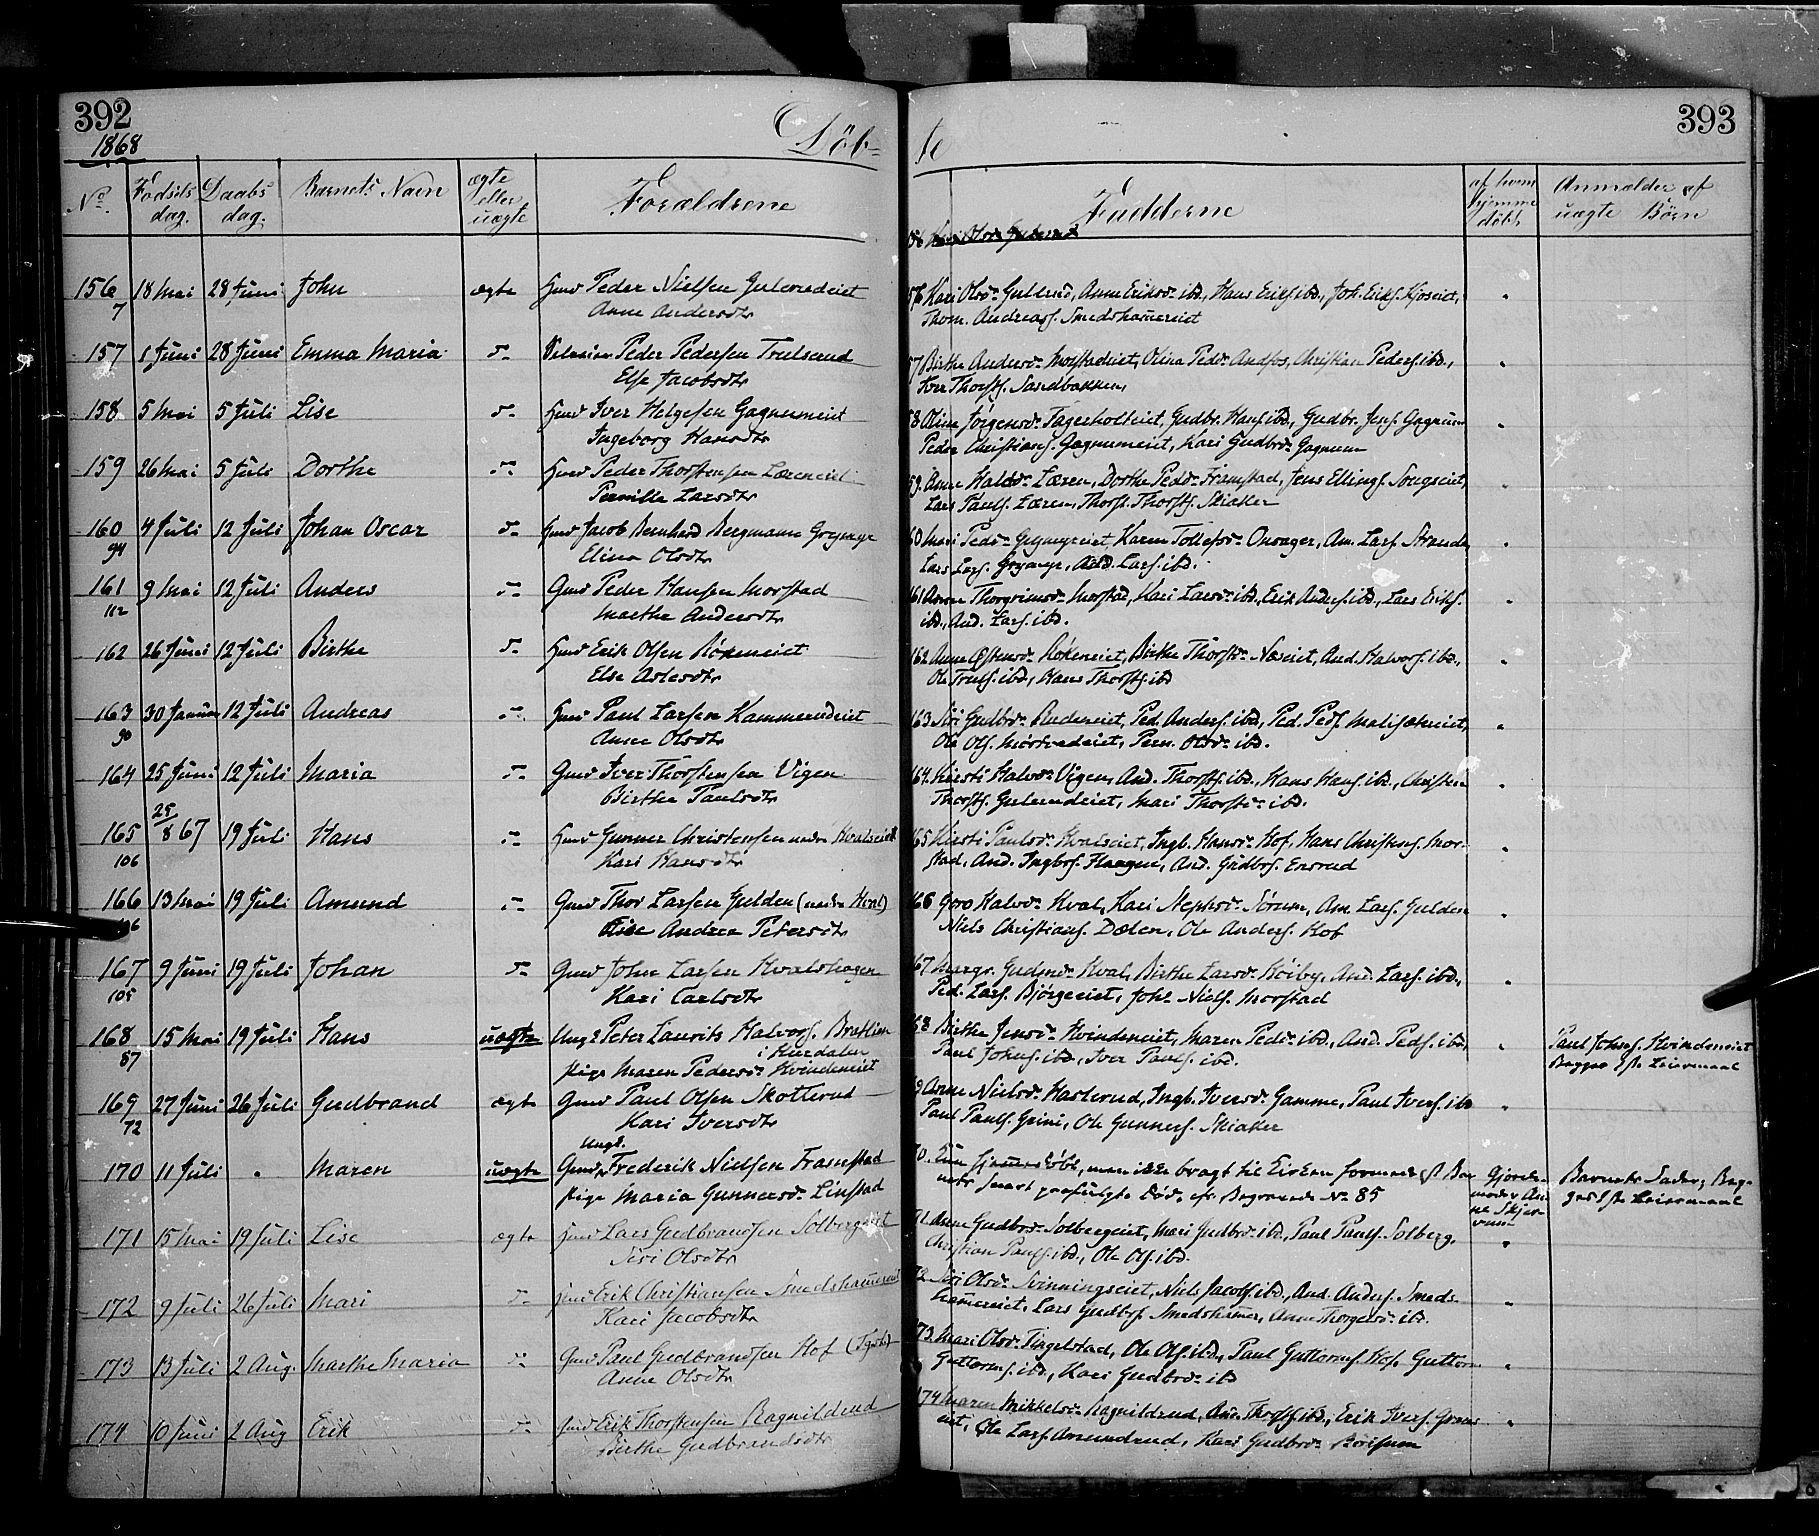 392
1868
Döb-
No.
Födsels dag.
Daabs dag.
Barnets Navn
ægte eller uægte
Forældrene
156
7
18 Mai
28 Juni
John
ægte
Huusd Peder Nielsen
Anne Andersdtr
157
28 Juni
Emma Maria
Peder Pedersen Trulserud
Else Jacobsdtr
158
5 Mai
5 Juli
Lise
Iver Helgesen Gagnumeiet
Ingeborg Hansdtr
159
26 Mai
5 Juli
Dorthe
Peder Thorstensen Læreneiet
Pernille Larsdtr
160
94
4 Juli
12 Juli
Johan Oscar
Jacob Bernhard Bergmann Grymyr
Elina Olsdtr
161
112
9 Mai
12 Juli
Anders
Peder Hansen Morstad
Marthe Andersdtr
162
26 Juni
12 Juli
Birthe
Erik Olsen Rökeneiet
Else Aslesdtr
163
90
30 Januar
12 Juli
Andreas
Paul Larsen Kammerudeiet
Anne Olsdtr
164
25 Juni
12 Juli
Maria
Iver Thorstensen Vigen
Birthe Paulsdtr
165
106
25/8 67
19 Juli
Hans
Gunner Christensen nedre Hvalseiet
Kari Hansdtr
166
13 Mai
19 Juli
Amund
Thor Larsen Gulden (nedre Hval)
Andrea Petersdtr
167
105
9 Juni
19 Juli
Johan
John Larsen Hvalshagen
Kari Carlsdtr
168
87
15 Mai
19 Juli
Hans
uægte
Ungk Peter Laurits Halvors. Bratlien
Pige Maren Pedersdr Hvindeneiet
169
72
27 Juni
26 Juli
Gudbrand
ægte
Paul Olsen Skotterud
Kari Iversdtr
170
11 Juli
"
Maren
uægte
Ungk.
Frederik Nielsen Framstad
Pige Maria Gunnersdr Linstad
171
15 Mai
19 Juli
Lise
ægte
Lars Gudbrandsen Solbergeiet
Siri Olsdtr
172
9 Juli
26 Juli
Mari
Erik Christiansen Smedshammereiet
Kari Jacobsdtr
173
13 Juli
2 Aug.
Marthe Maria
Paul Gudbrandsen Hof
Anne Olsdtr
174
10 Juni
2 Aug
Erik
Erik Thorstensen Ragnildrud
Birthe Gudbrandsdtr
te
393
Fadderne
af hvem hjemme döbt.
Anmelder af uægte Börn
Kari Olsdr Gulerud, Anne Eriksdr ibd., Hans Eriks. ibd., Joh. Eriks.
Thom. Andreas. Smedshammereiet
57 Birthe Andersdr Morstadeiet, Olina Pedsdr, Christian Peders. ibd.,
Iver Thorsts. Sandbakken,
58 Jörgensdr Fagerholteiet, Gudbr. Hans. ibd., Gudbr. Jens. Gagnum
Peder Christians. Gagnumeiet, Kari Gudbrdr Gagnum
59. Anne Halvdr Læren, Dorthe Pedsdr Framstad, Jens Ellings. Songseiet,
Lars Pauls. Læren, Thorst. Thorsts. Skiaker
60 Mari Pedsdr Grymyreiet, Karen Tollefsdr Onsager, Am. Lars. Stranden
Lars Lars. Grymyr, And. Lars. ibd.
161 Anne Thorgrimsdr Morstad, Kari Larsdr ibd., Erik Anders. ibd., Lars Eriks.
ibd., And. Lars. ibd.
162 Anne Östensdr Rökeneiet, Birthe Thorstdr Næseiet, And. Halvors. ibd.,
Ole Truls. ibd., Hans Thorsts. ibd
163 Siri Gudbrdr, Ped. Anders. ibd., Ped. Peds. Malisætereiet,
Ole Ols., Pern. Olsdr ibd.
164. Kirsti Halvdr Vigen, And. Thorsts. ibd., Hans Hans. ibd., Christen
Thorsts., Mari Thorstdr ibd.
165 Kirsti Paulsdr Hvalseiet, Ingb. Hansdr Hof, Hans Christens. Mor-
stad, And. Ingbrs. Haagen, And. Gudbrs. Ensrud
166 Goro Halvdr Hval, Kari Nephsdr Sörum, Am. Lars. Gulden
Niels Christians. Dælen, Ole Anders. Hof
67 Margr. Gudmdr Hval, Birthe Larsdr Höiby, And. Lars. ibd.,
Ped. Lars. Bjørgeeiet, Joh. Niels. Morstad
68 Birthe Jensdr Hvindeneiet, Maren Pedsdr ibd., And. Peds. ibd,
Paul Johns. ibd., Iver Pauls. ibd.
Paul Johns. Hvindeneiet
Begges 1ste Leiermaal
69 Anne Nielsdr Hasterud, Ingb. Iversdr Gamme, Paul Ivers. ibd
Paul Pauls. Grini, Ole Gunners. Skiaker
70. Er hjemmedöbt, men ikke bragt til Kirken formedelst Bar
nets snart paafulgte Död, cfr Begravede No 85
Barnets Fader, Beg-
ges 1ste Leiermaal
71. Anne Gudbrdr Solbergeiet, Mari Gudbrdr ibd., Paul Pauls. Solberg,
Christian Pauls. ibd., Ole Ols. ibd.
72. Siri Olsdr Svinningseiet, Niels Jacobs. ibd., And. Anders. Smeds-
hammereiet, Lars Gudbrs. Smedshammer, Anne Thorgersdr ibd.
73. Mari Olsdr Tingelstad, Ole Ols. ibd., Paul Guttorms. Hof, Guttorm
Guttorms. ibd., Kari Gudbrdr ibd
174 Maren Mikkelsdr Ragnildrud, And. Thorsts. ibd., Erik Ivers.
eiet, Ole Lars. Amundrud, Kari Gudbrdr